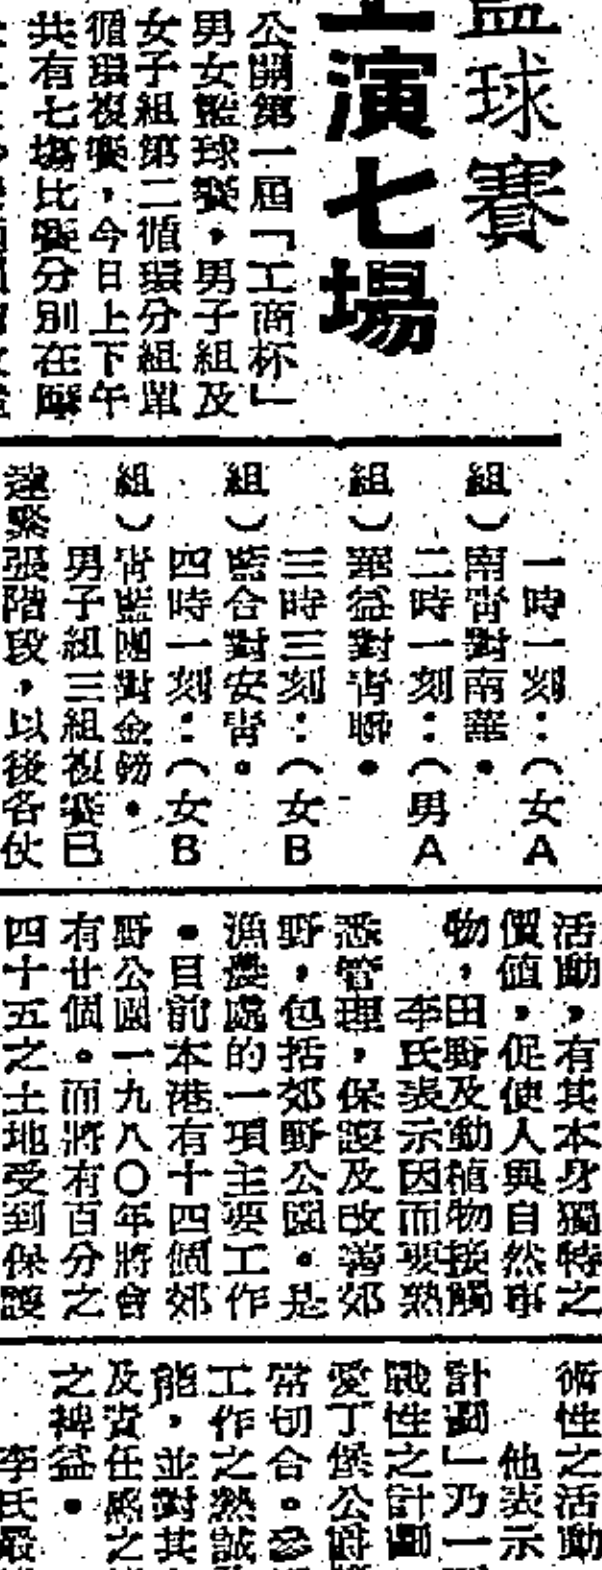 籃球賽
上演七場
公開第一屆「工商杯」
男女籃球賽，男子組及
女子組第二循環分組單
循環複賽，今日上下午
共有七場比賽分別在
一時一刻：（女A
組）南青對南華。
二時一刻：（男A
組）華益對青聯。
三時三刻：（女B
組）藍合對安青。
四時一刻：（女B
組）青藍團對金鎊。
男子組三組複賽已
達緊張階段，以後各仗
活動，有其本身獨特之
價值，促使人與自然事
物，田野及動植物接觸
李氏表示因而要熟
悉管理，保護及改善郊
野，包括郊野公園。是
漁農處的一項主要工作
。目前本港有十四個郊
野公園一九八〇年將會
有廿個。而將有百分之
四十五之土地受到保護
術性之活動
他表示
計劃」乃一
戰性之計劃
愛丁堡公爵
常切合。參
工作之熱誠
能，並對其
及責任感之
之裨益。
李氏最